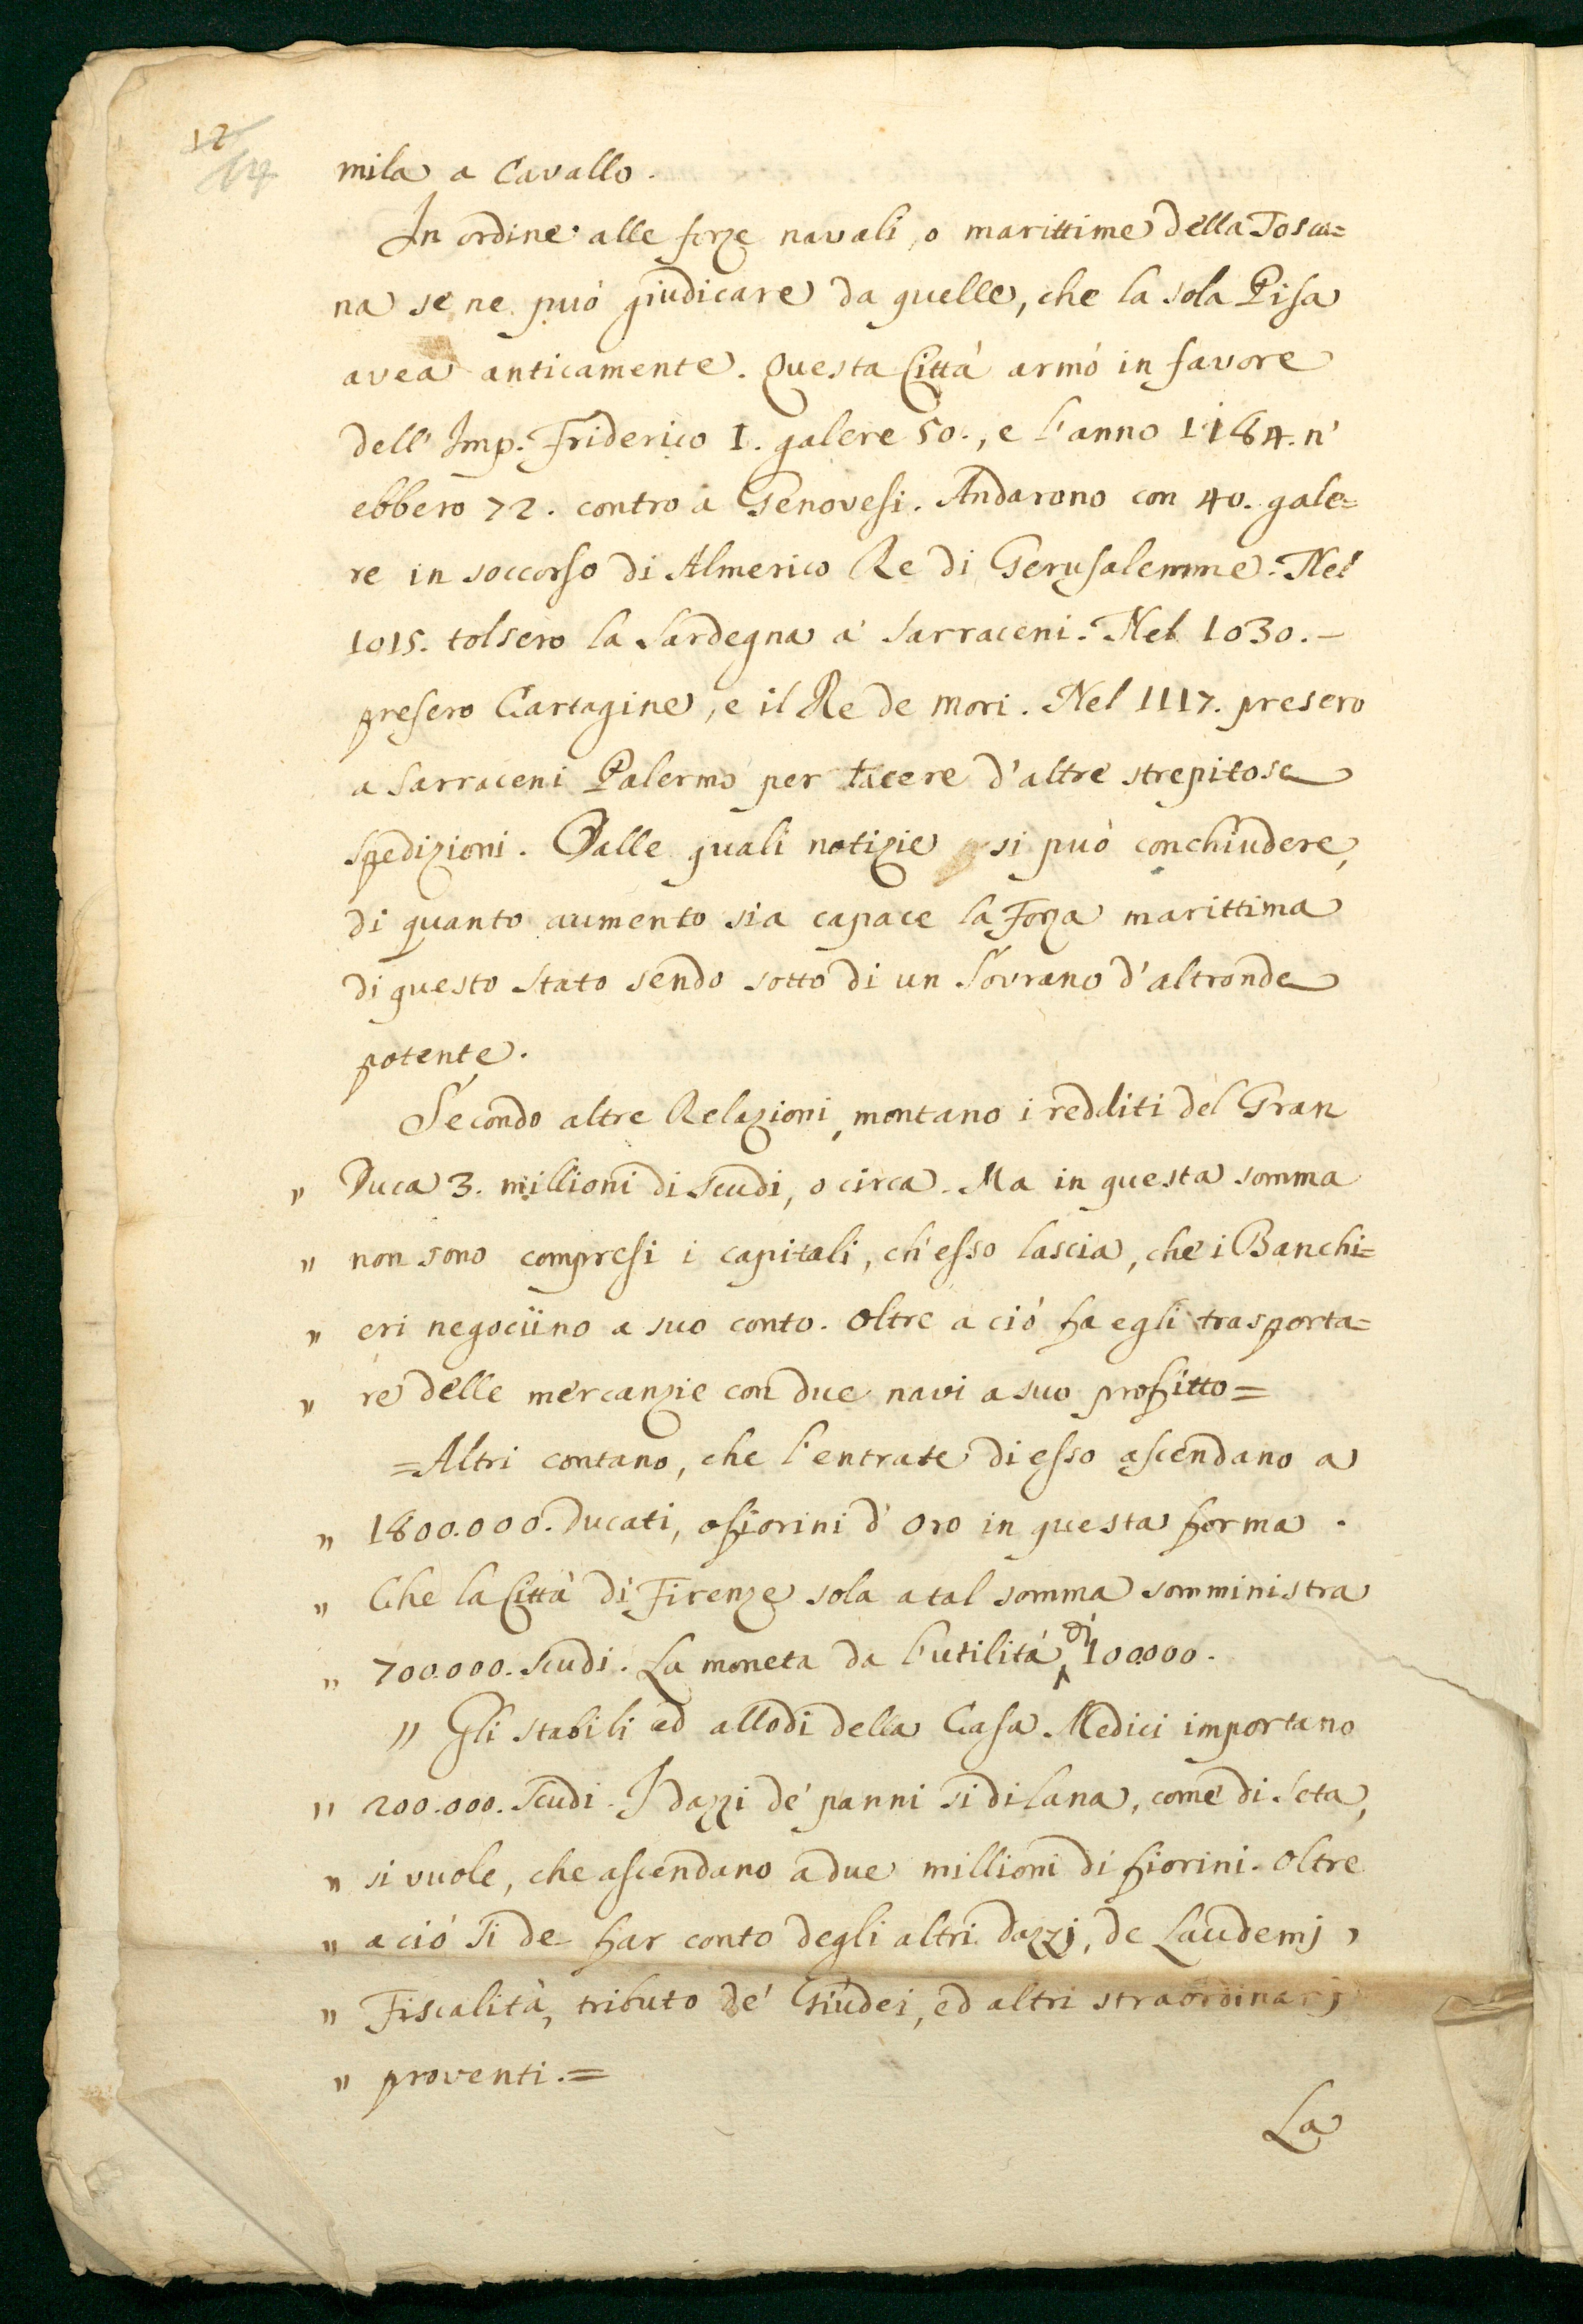 12
14
mila a Cavallo.
In ordine alle forze navali, o marittime della Tosca=
na se ne può giudicare da quelle, che la sola Pisa
avea anticamente. Questa Città armò in favore
dell' Imp. Friderico I. galere 50., e l'anno 1184. n'
ebbero 72. contro a Genovesi. Andarono con 40. gale=
re in soccorso di Almerico Re di Gerusalemme. Nel
1015. tolsero la Sardegna a' Sarraceni. Nel 1030. –
presero Cartagine, e il Re de Mori. Nel 1117. presero
a Sarraceni Palermo per tacere d'altre strepitose
spedizioni. Dalle quali notizie si può conchiudere,
di quanto aumento sia capace la Forza marittima
di questo Stato sendo sotto di un Sovrano d'altronde
potente.
Secondo altre Relazioni, montano i redditi del Gran
" Duca 3. millioni di Scudi, o circa. Ma in questa somma
" non sono compresi i capitali, ch'esso lascia, che i Banchi=
" eri negociino a suo conto. Oltre a ciò fa egli trasporta=
" re delle mercanzie con due navi a suo profitto=
=Altri contano, che l'entrate di esso ascendano a
" 1800.000. Ducati, o fiorini d'Oro in questa forma.
" Che la Città di Firenze sola a tal somma somministra
" 700.000. Scudi. La moneta da l'utilità di 100.000.
" Gli stabili ed allodi della Casa Medici importano
" 200.000. Scudi. I dazzi de' panni sì di lana, come di Seta,
" si vuole, che ascendano a due millioni di fiorini. Oltre
" a ciò si de far conto degli altri dazzj, de Laudemj,
" Fiscalità, tributo de' Giudei, ed altri straordinarj
" proventi.=
La